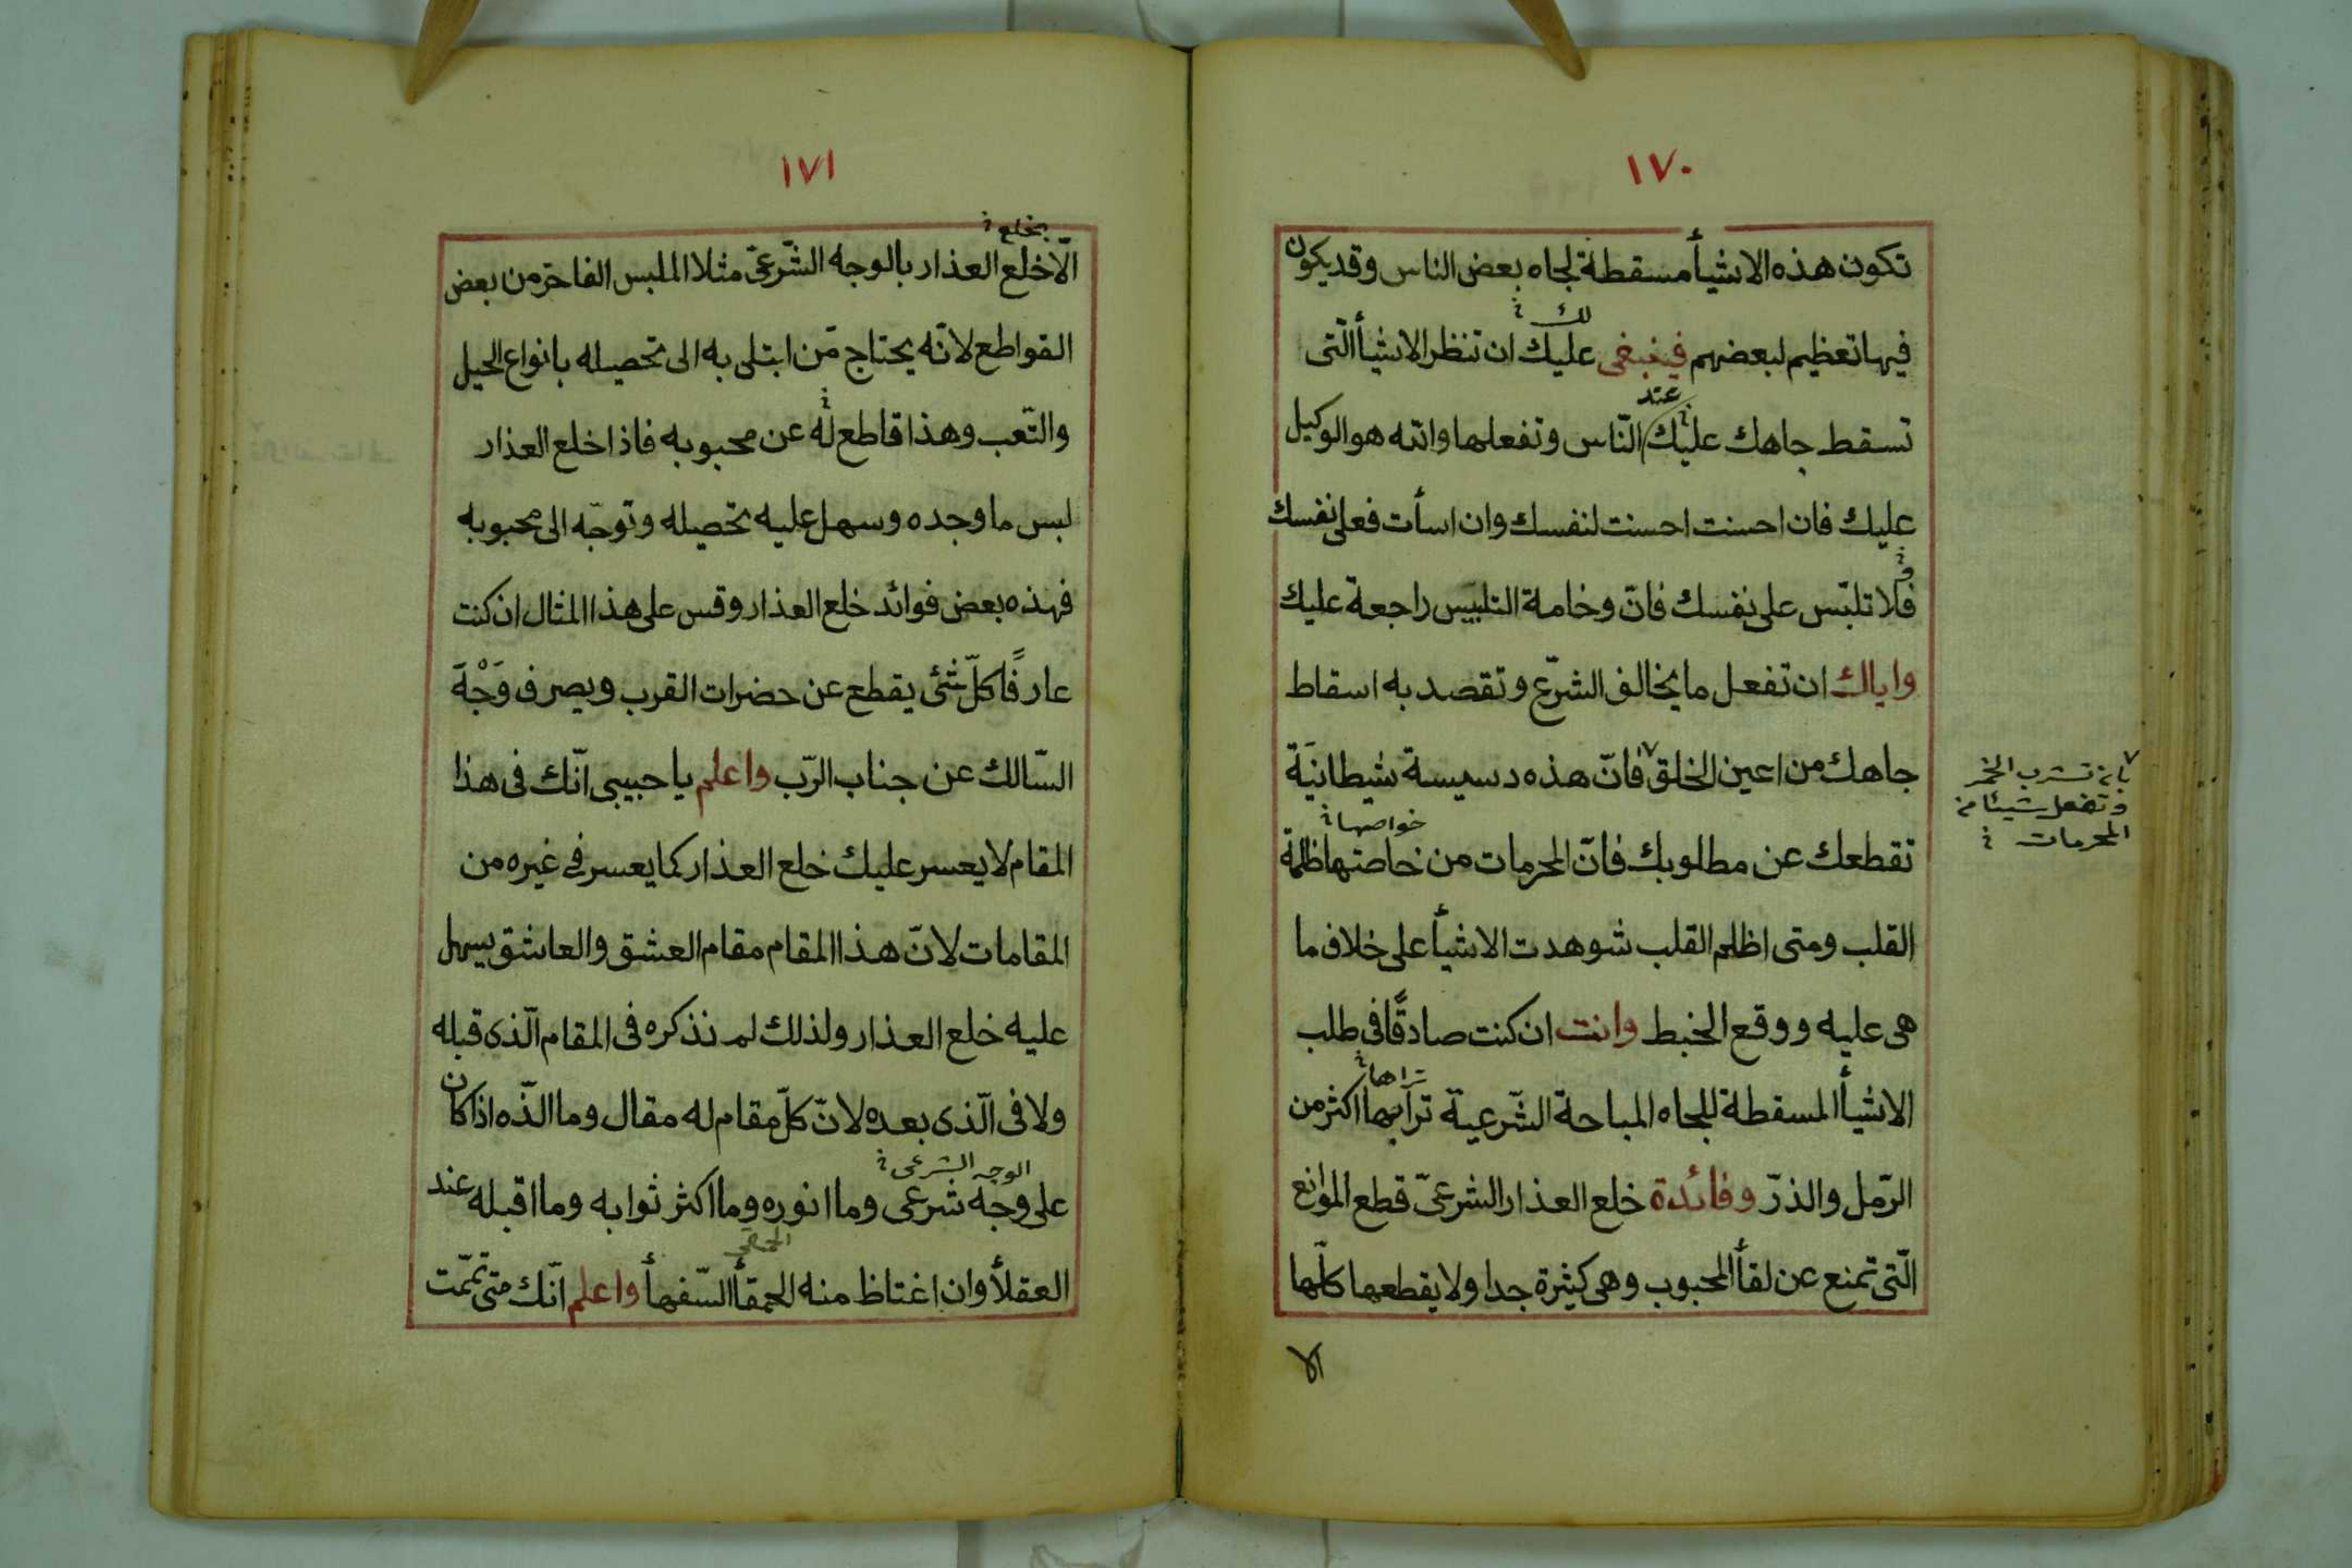 ١٧٠
تكون هذه الاشيأ مسقطة لجاه بعض الناس وقد يكون
لك
فيها تعظيم لبعضهم فينبغى عليك ان تنظر الاشيأ الّتى
عند
تسقط جاهك عليك النّاس وتفعلها وانّه هو الوكيل
عليك فان احسنت احسنت لنفسك وان اسأت فعلى نفسك
و
فلا تلبّس على نفسك فانّ وخامة التلبيس راجعة عليك
واياك ان تفعل ما يخالف الشرّع وتقصد به اسقاط
جاهك من اعين الخلق ٧ فانّ هذه دسيسة شيطانيّة
٧ بان تشرب الخمر
وتفعل شيئا من
المحرمات
خواصها
تقطعك عن مطلوبك فانّ المحرمات من خاصتها ظلمة
القلب ومتى اظلم القلب شوهدت الاشيأ على خلاف ما
هى عليه ووقع الخبط وانت ان كنت صادقًا فى طلب
تراها
الاشيأ المسقطة للجاه المباحة الشّرعيّة ترأيهما اكثر من
الرّمل والذرّ وفائدة خلع العذار الشرعىّ قطع الموانع
الّتى تمنع عن لقأ المحبوب وهى كثيرة جدا ولا يقطعها كلّها
الا
١٧١
بخلع
الّا خلع العذار بالوجه الشّرعىّ مثلا الملبس الفاخر من بعض
القواطع لانّه يحتاج مّن ابتلى به الى تحصيله بانواع الحيل
والتّعب وهذا قاطع له عن محبوبه فاذا خلع العذار
لبس ما وجده وسهل عليه تحصيله وتوجّه الى محبوبه
فهذه بعض فوائد خلع العذار وقس على هذا المثال ان كنت
عارفًا كلّ شئ يقطع عن حضرات القرب ويصرف وَجْهَ
السّالك عن جناب الرّب واعلم يا حبيبى انّك فى هذا
المقام لا يعسر عليك خلع العذار كما يعسر فى غيره من
المقامات لانّ هذا المقام مقام العشق والعاشق يسهل
عليه خلع العذار ولذلك لم نذكره فى المقام الّذى قبله
ولا فى الّذى بعده لانّ كلّ مقام له مقال وما الذّه اذا كان
الوجه الشرعى
على وجه شرعى وما انوره وما اكثر ثوابه وما اقبله عند
الحمقى
العقلأ وان اغتاظ منه الحمقأ السّفهأ واعلم انّك متى تمّمت